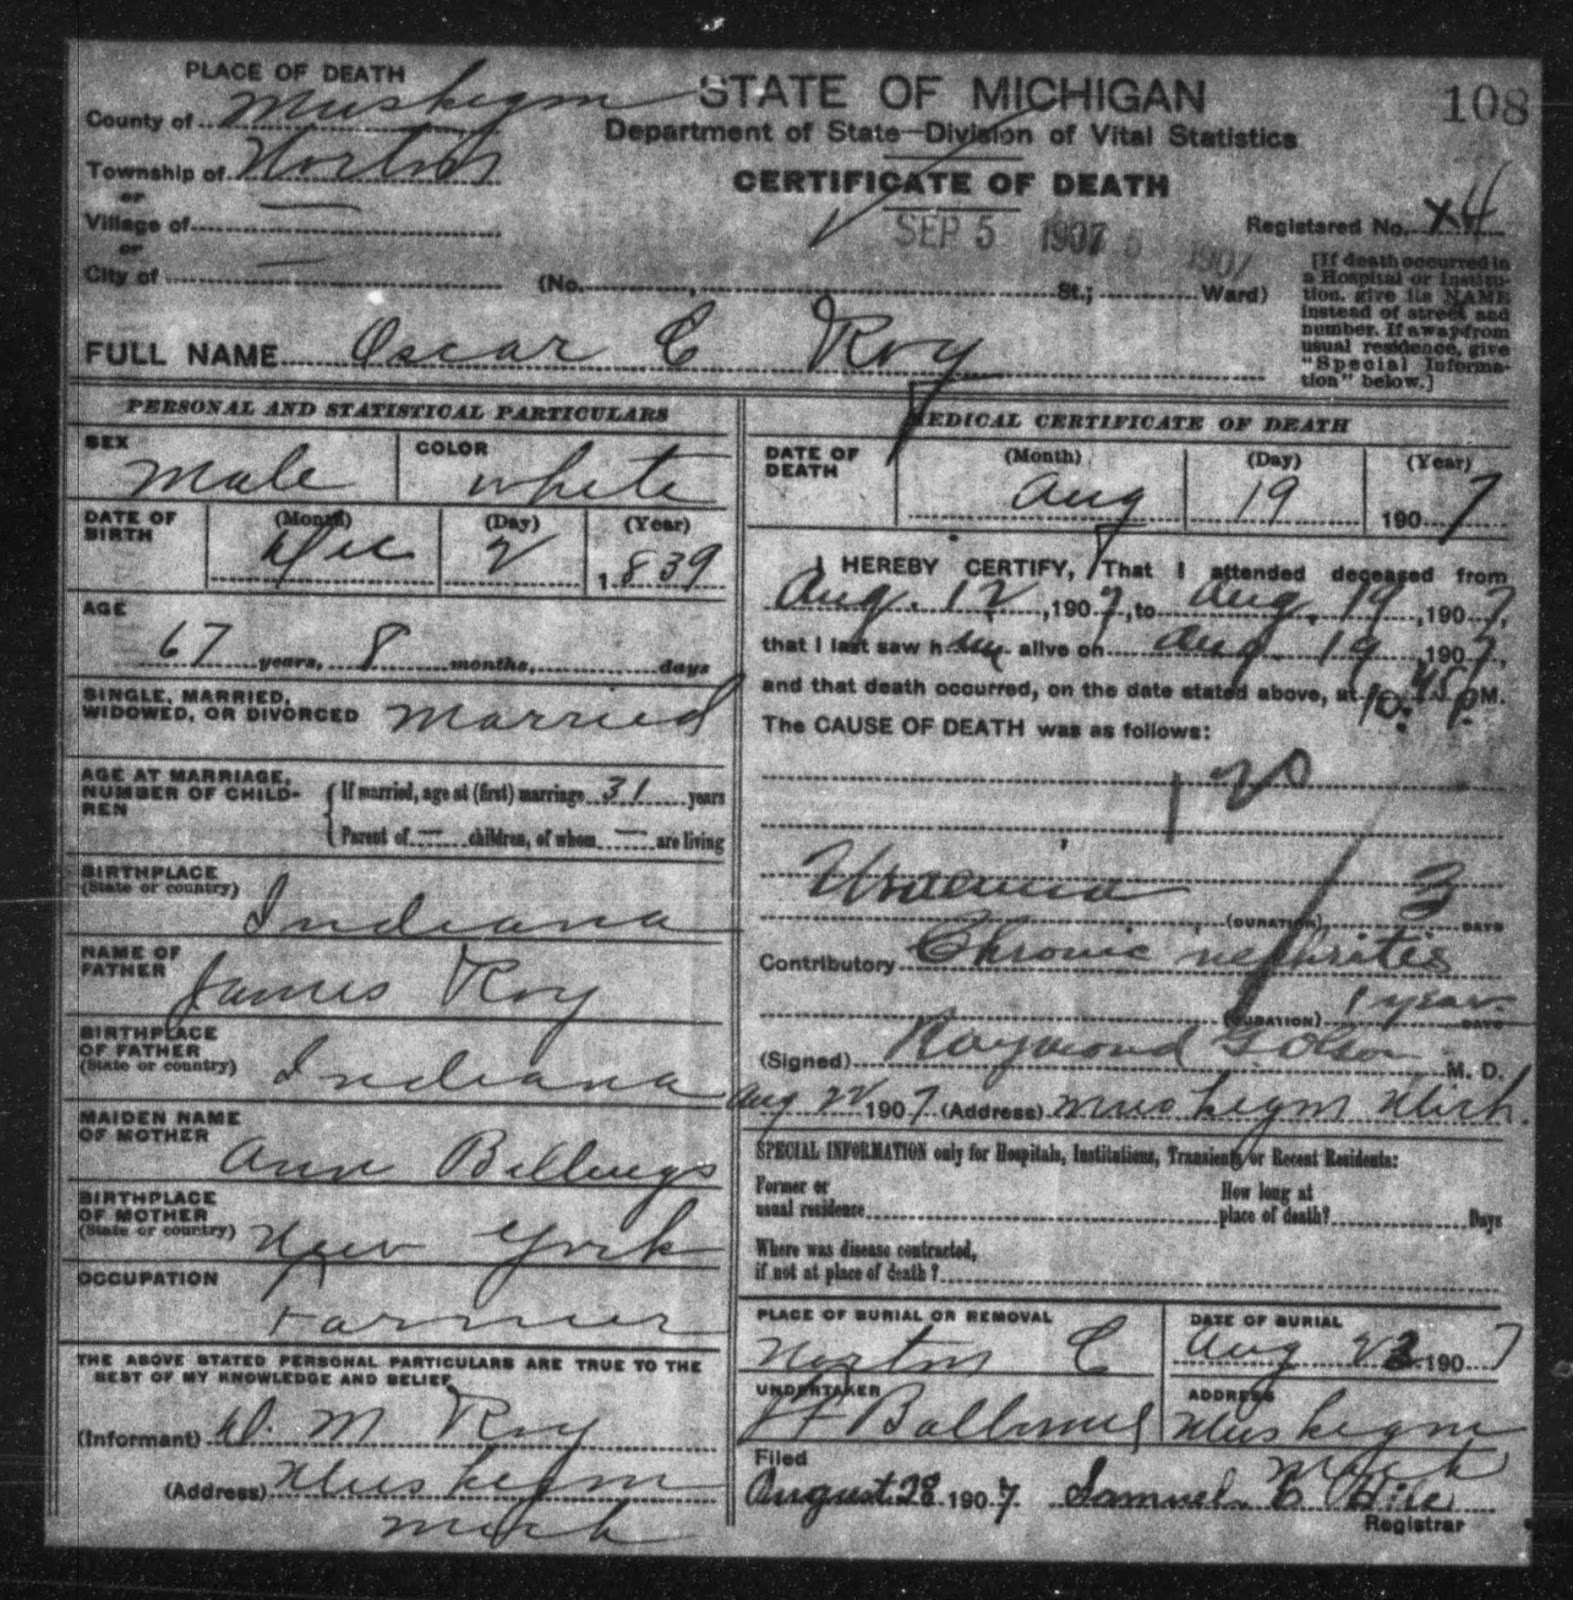 108
PLACE OF DEATH
STATE OF MICHIGAN
County of Muskegon
Department of State—Division of Vital Statistics
Township of Norton
CERTIFICATE OF DEATH
or
Village of —
SEP 5 1907 5 1907
Registered No. X4
or
City of — (No. , St.; Ward)
[If death occurred in
a Hospital or Institu-
tion, give its NAME
instead of street and
number. If away from
usual residence, give
"Special Informa-
tion" below.]
FULL NAME Oscar C Roy
PERSONAL AND STATISTICAL PARTICULARS
SEX Male
COLOR white
DATE OF
BIRTH
(Month) Dec
(Day) 2
(Year) 1839
AGE
67 years, 8 months, days
SINGLE, MARRIED,
WIDOWED, OR DIVORCED Married
AGE AT MARRIAGE,
NUMBER OF CHILD-
REN
If married, age at (first) marriage 31 years
Parent of — children, of whom — are living
BIRTHPLACE
(State or country) Indiana
NAME OF
FATHER James Roy
BIRTHPLACE
OF FATHER
(State or country) Indiana
MAIDEN NAME
OF MOTHER Ann Billings
BIRTHPLACE
OF MOTHER
(State or country) New York
OCCUPATION
Farmer
THE ABOVE STATED PERSONAL PARTICULARS ARE TRUE TO THE
BEST OF MY KNOWLEDGE AND BELIEF
(Informant) D. M Roy
(Address) Muskegon
Mich
MEDICAL CERTIFICATE OF DEATH
DATE OF
DEATH
(Month) Aug
(Day) 19
(Year) 1907
I HEREBY CERTIFY, That I attended deceased from
Aug. 12, 1907, to Aug. 19, 1907,
that I last saw him alive on Aug. 19, 1907,
and that death occurred, on the date stated above, at 10:45 P M.
The CAUSE OF DEATH was as follows:
120
Uraemia
(DURATION) 3 DAYS
Contributory Chronic nephritis
(DURATION) 1 year DAYS
(Signed) Raymond G Olson M. D.
Aug 22 1907 (Address) Muskegon Mich.
SPECIAL INFORMATION only for Hospitals, Institutions, Transients or Recent Residents:
Former or
usual residence
How long at
place of death? Days
Where was disease contracted,
if not at place of death?
PLACE OF BURIAL OR REMOVAL
Norton C
DATE OF BURIAL
Aug 22 1907
UNDERTAKER
ADDRESS
Muskegon
Mich
Filed
August 28 1907 Samuel C Hile
Registrar